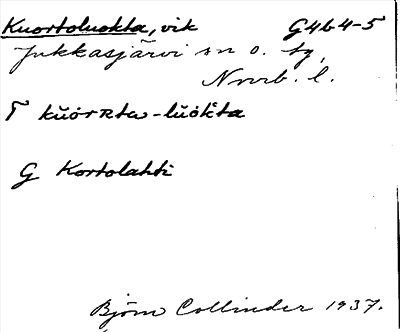 Kuortoluokta, vik G4b4-5
Jukkasjärvi sn o. tg,
Norrb. l.
T kŭorʀtω-lŭok̀ta
G Kortolahti
Björn Collinder 1937.